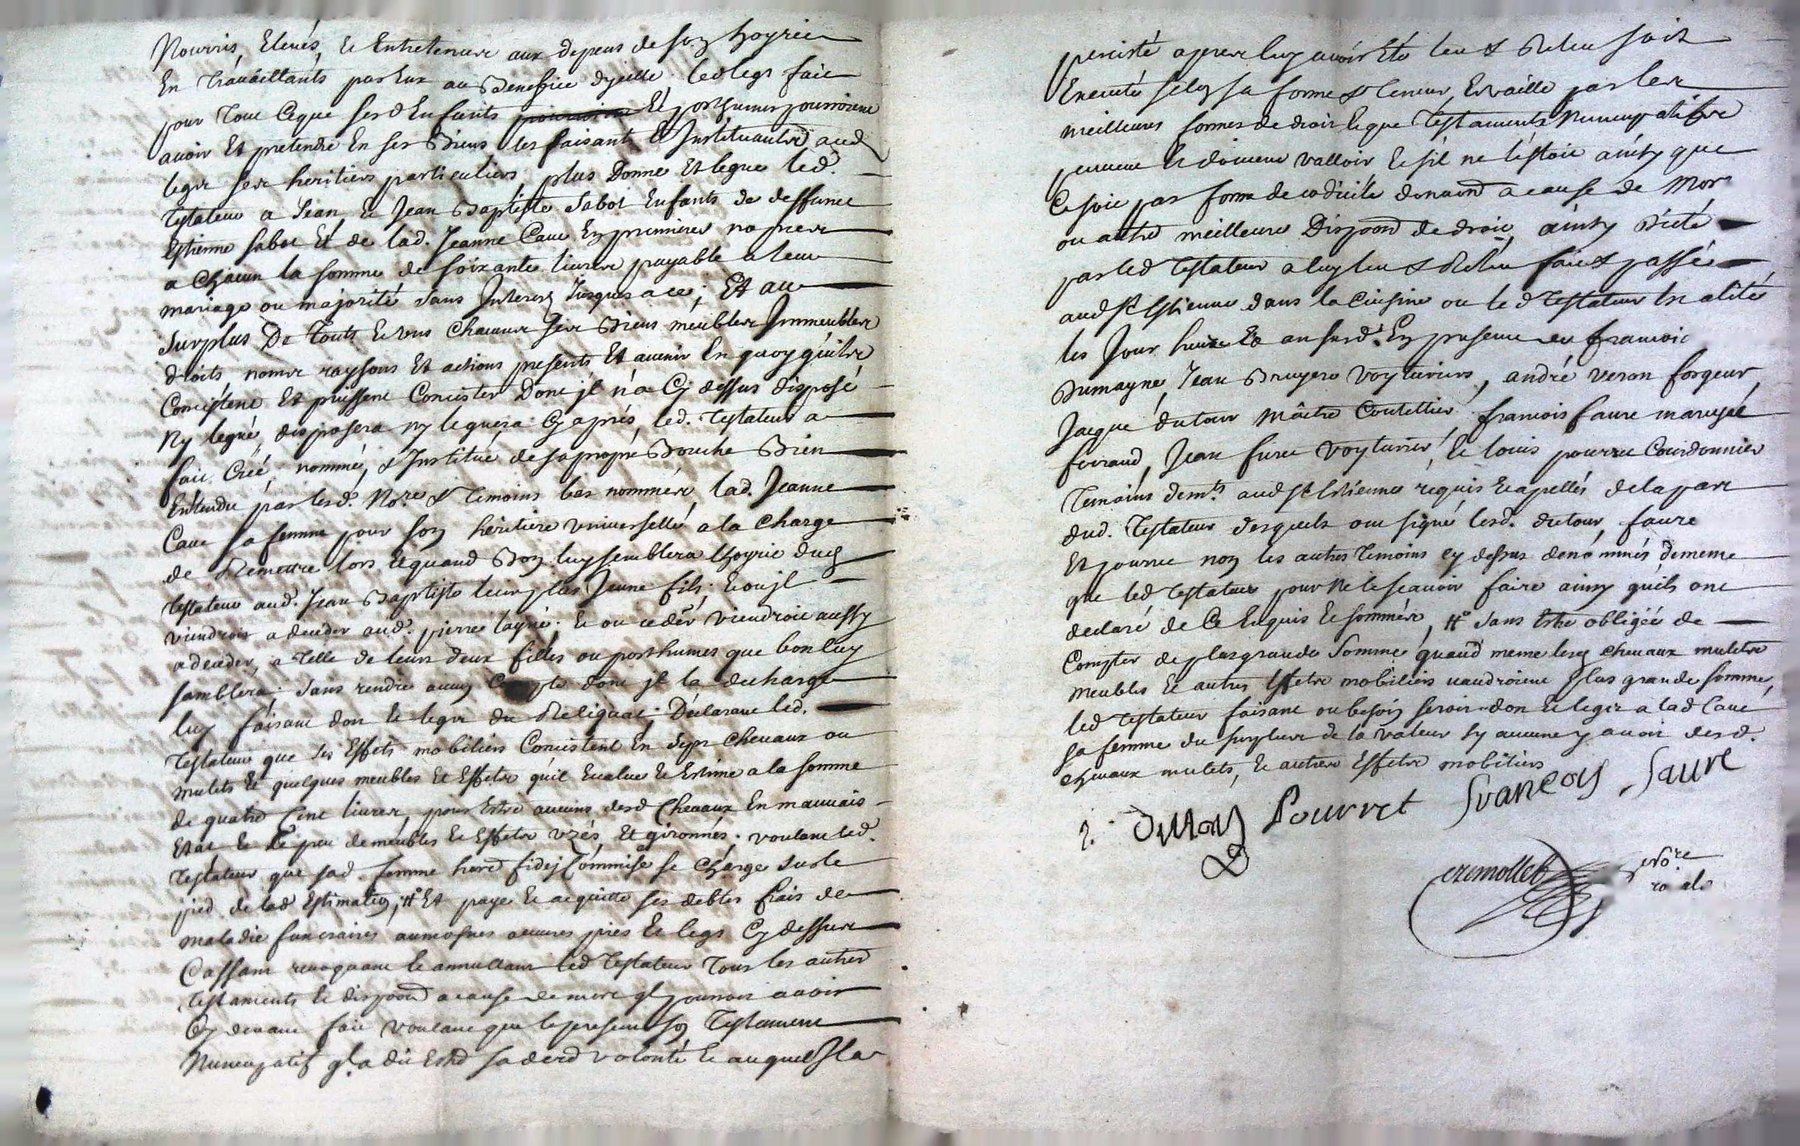 Nourris, Elevés, et Entretenus aux depens de son hoyrie
En travaillants par Eux au Benefice d'jcelle led. legs fait
pour tout ceque sesd Enfants Et posthumes pourroient
avoir Et pretendre En ses Biens les faisants et Instituants aud
legs ses heritiers particuliers plus Donne Et legue led.
Testateur a Jean, et Jean Baptiste Sabot Enfants de deffunct
Estienne Sabot Et de lad. Jeanne Cave En premieres nopces
a chacun la somme de soixante livres payable a leur
mariage ou majorité sans Interest jusques a ce; Et au
surplus De touts et uns chacuns ses Biens meubles Immeubles
droits noms raysons Et actions presents Et avenir En quoy qu'ils
Concistent Et puissent Concister Dont jl n'a Cy dessus disposé
Ny legué, disposera ny leguera Cy aprés, led. Testateur a
fait, Créé, nommé, & Institué de sa propre Bouche Bien
Entendu par lesd. No.re & Temoins bas nommés lad. Jeanne
Cave sa femme pour son heritiere universelle a la charge
de Remettre lors et quand Bon luy semblera lhoyrie dud
testateur aud. Jean Baptiste leur plus Jeune fils; Et ou jl
viendroit a deceder aud. pierre l'ayné: et ou ce der viendroit aussy
a deceder, a telle de leurs deux filles ou posthumes que bon luy
semblera sans rendre aucun Compte dont jl la decharge
luy faisant don et legs du Reliquat; Declarant led.
Testateur que ses Effets mobiliers Concistent En sept Chevaux ou
mulets et quelques meubles Et Effets qu'il Evalue et Estime a la somme
de quatre Cent livres, pour Estre aucuns desd Chevaux En mauvais
Etat et le peu de meubles et Effets uzés, Et gironnés. voulant led.
Testateur que sad. femme hered fidej Commise se charge sur le
pied de lad Estimation, # Et paye et acquitte ses debtes frais de
maladie funeraires aumosnes œuvres pies et legs Cy dessus
Cassant revoquant et annullant led Testateur Tous les autres
testaments et dispoon a cause de mort ql pourroit avoir
Cy devant fait voulant que le present son Testament
Nuncupatif ql a dit Estre sa dere volonté et auquel Il a
perciste apres luy avoir Eté leu & Releu soit
Executé selon sa forme & teneur, Et vaille par les
meilleures formes de droit et que Testaments Nuncupatifs
peuvent et doivent valloir et s'il ne l'estoit ainsy que
Ce soit par forme de codicile donaon a cause de Mort
ou autre meilleure Dispoon de droit, ainsy Dicté
par led Testateur a luy leu & Releu fait & passé
aud St Estienne dans la Cuisine ou led Testateur Est alité
les Jour heure Et an susd. En presence de francois
Dumayne, Jean Bruyere voyturiers, andré veron forgeur,
Jacque dutour maitre Coutellier, francois faure
ferraud, Jean furet voyturier, et louis pourret Courdonnier
Temoins dem.ts aud St Estienne requis et apellés de la part
dud. Testateur desquels ont signé lesd. dutour, faure
Et pourret non les autres temoins cy dessus denommés de meme
que led Testateur pour ne le scavoir faire ainsy qu'ils ont
declaré de Ce Enquis et sommés, # sans Estre obligée de
Compter de plus grande somme, quand meme lesd chevaux mulets
meubles et autres Effets mobiliers vaudroient plus grande somme,
led Testateur faisant ou besoin seroit don et legs a lad Cave
sa femme du surplus de la valeur sy aucune y avoit desd.
chevaux mulets, et autres Effets mobiliers
Pourret Francois Faure
cremollet no.re
roial